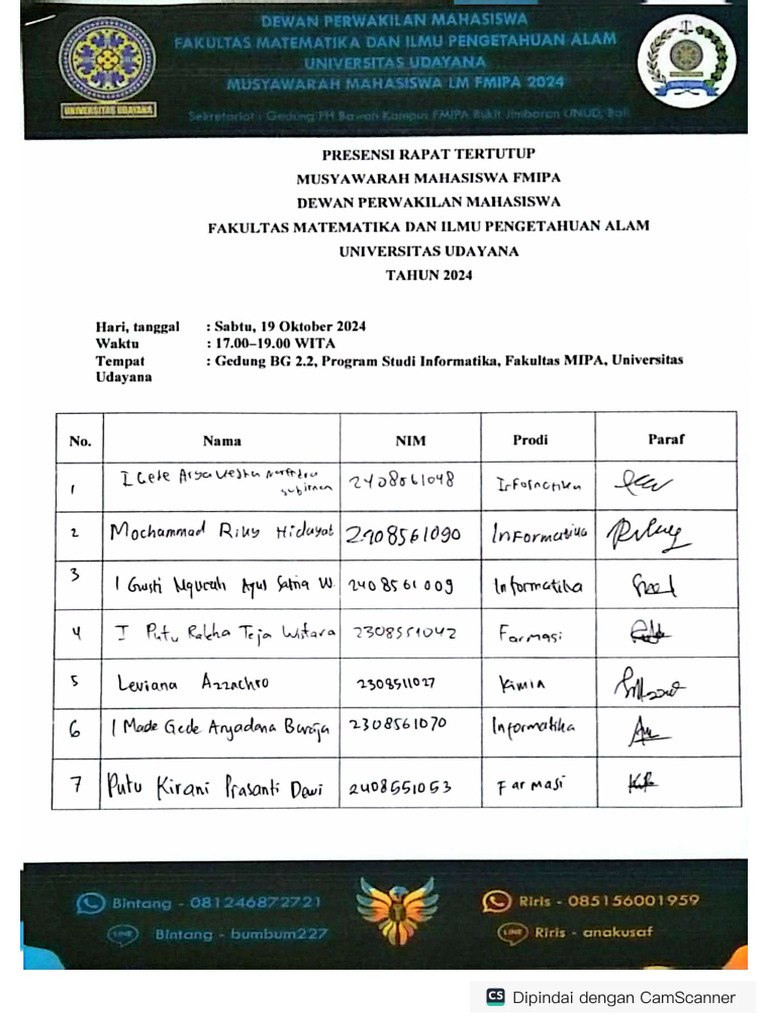 DEWAN PERWAKILAN MAHASISWA
FAKULTAS MATEMATIKA DAN ILMU PENGETAHUAN ALAM
UNIVERSITAS UDAYANA
MUSYAWARAH MAHASISWA LM FMIPA 2024
Sekretariat : Gedung PH Bawah Kampus FMIPA Bukit Jimbaran UNUD, Bali
UNIVERSITAS UDAYANA
PRESENSI RAPAT TERTUTUP
MUSYAWARAH MAHASISWA FMIPA
DEWAN PERWAKILAN MAHASISWA
FAKULTAS MATEMATIKA DAN ILMU PENGETAHUAN ALAM
UNIVERSITAS UDAYANA
TAHUN 2024
Hari, tanggal : Sabtu, 19 Oktober 2024
Waktu : 17.00–19.00 WITA
Tempat : Gedung BG 2.2, Program Studi Informatika, Fakultas MIPA, Universitas
Udayana
No. Nama NIM Prodi Paraf
1 I Gede Arya 2408561048 Informatika
2 Mochammad Riky Hidayat 2208561090 Informatika
3 I Gusti Ngurah Agus Satria W. 2408561009 Informatika
4 I Putu Rakha Teja Witara 2308551042 Farmasi
5 Leviana Azzachro 2308511027 Kimia
6 I Made Gede Aryadana Baraja 2308561070 Informatika
7 Putu Kirani Prasanti Dewi 2408551053 Farmasi
Bintang - 081246872721 Riris - 085156001959
LINE Bintang - bumbum227 LINE Riris - anakusaf
CS Dipindai dengan CamScanner